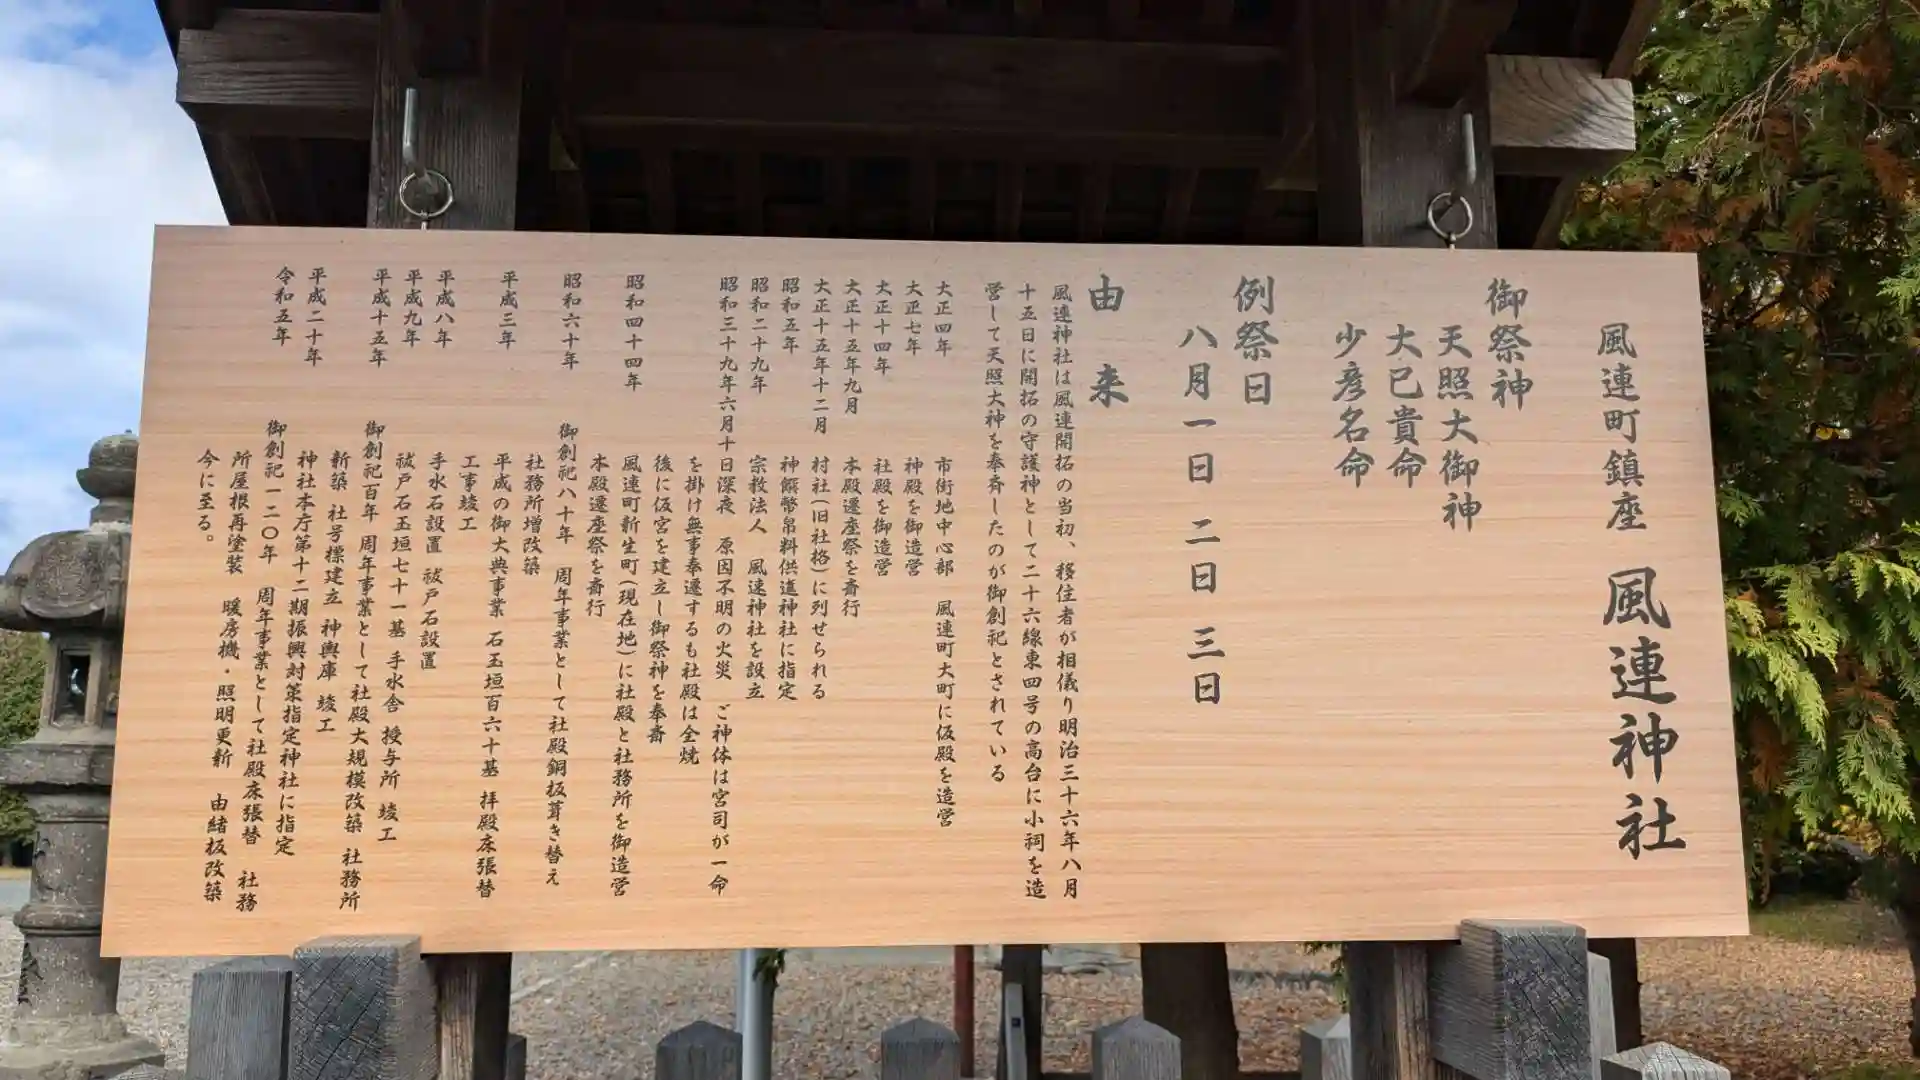 風連町鎮座 風連神社
御祭神
天照大御神
大已貴命
少彦名命
例祭日
八月一日 二日 三日
由来
風連神社は風連開拓の当初、移住者が相儀り明治三十六年八月
十五日に開拓の守護神として二十六線東四号の高台に小祠を造
営して天照大神を奉斉したのが御創祀とされている
大正四年 市街地中心部 風連町大町に仮殿を造営
大正七年 神殿を御造営
大正十四年 社殿を御造営
大正十五年九月 本殿遷座祭を斎行
大正十五年十二月 村社(旧社格)に列せられる
昭和五年 神饌幣帛料供進神社に指定
昭和二十九年 宗教法人 風連神社を設立
昭和三十九年六月十日深夜 原因不明の火災 ご神体は宮司が一命
を掛け無事奉遷するも社殿は全焼
後に仮宮を建立し御祭神を奉斎
昭和四十四年 風連町新生町(現在地)に社殿と社務所を御造営
本殿遷座祭を斎行
昭和六十年 御創祀八十年 周年事業として社殿銅板葺き替え
社務所増改築
平成三年 平成の御大典事業 石玉垣百六十基 拝殿床張替
工事竣工
平成八年 手水石設置 祓戸石設置
平成九年 祓戸石玉垣七十一基 手水舎 授与所 竣工
平成十五年 御創祀百年 周年事業として社殿大規模改築 社務所
新築 社号標建立 神輿庫 竣工
平成二十年 神社本庁第十二期振興対策指定神社に指定
令和五年 御創祀一二〇年 周年事業として社殿床張替 社務
所屋根再塗装 暖房機・照明更新 由緒板改築
今に至る。